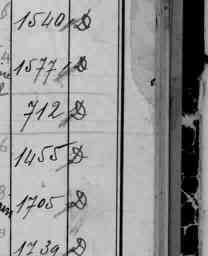 1540 D
1577 D
712 D
1455 D
1705 D
1739 D